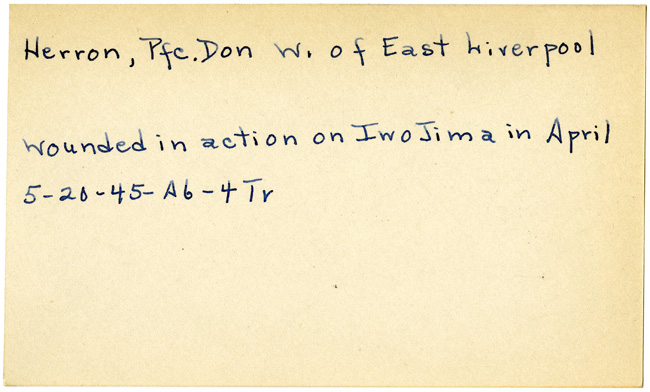 Herron, Pfc. Don W. of East Liverpool
wounded in action on Iwo Jima in April
5-20-45-A6-4 Tr